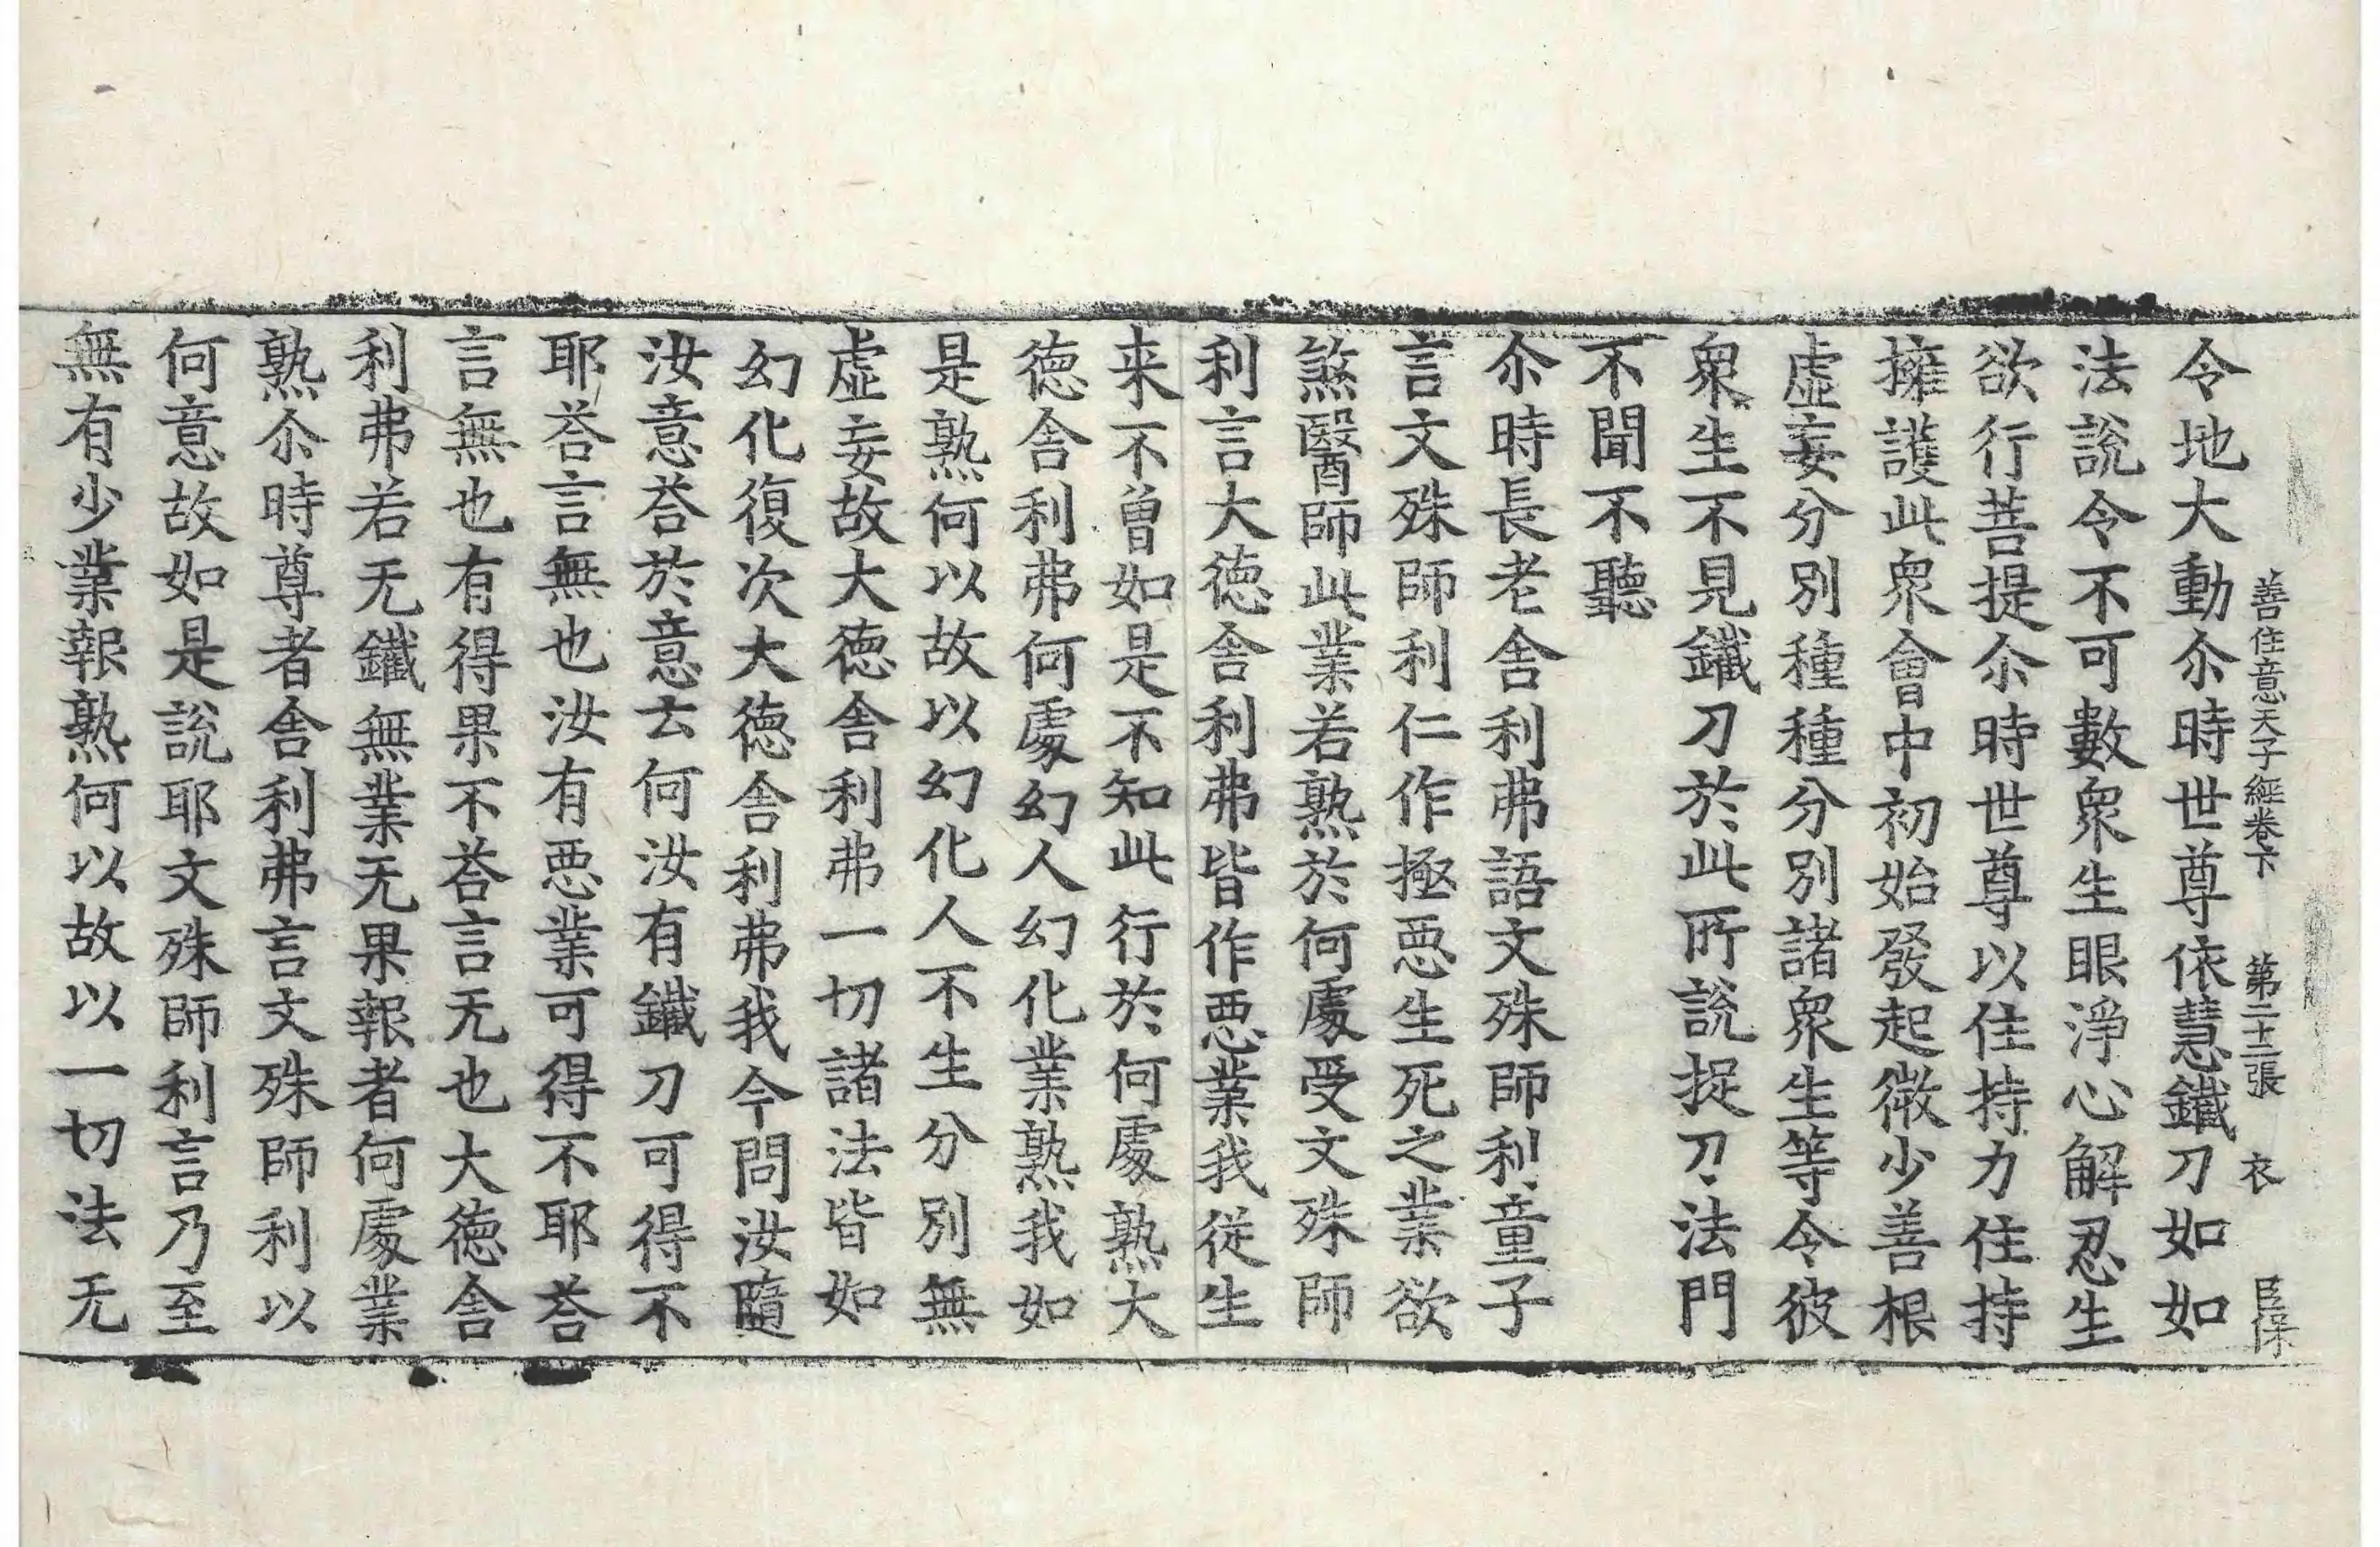 善住意天子經卷下　第二十二張　衣　臣保
令地大動尒時世尊依慧鐵刀如如
法說令不可數衆生眼淨心解忍生
欲行菩提尒時世尊以住持力住持
擁護此衆會中初始發起微少善根
虛妄分別種種分別諸衆生等令彼
衆生不見鐵刀於此所說捉刀法門
不聞不聽
尒時長老舍利弗語文殊師利童子
言文殊師利仁作極惡生死之業欲
煞醫師此業若熟於何處受文殊師
利言大德舍利弗皆作惡業我從生
来不曾如是不知此行於何處熟大
德舍利弗何處幻人幻化業熟我如
是熟何以故以幻化人不生分別無
虛妄故大德舍利弗一切諸法皆如
幻化復次大德舍利弗我今問汝隨
汝意荅於意云何汝有鐵刀可得不
耶荅言無也汝有惡業可得不耶荅
言無也有得果不荅言无也大德舍
利弗若无鐵無業无果報者何處業
熟尒時尊者舍利弗言文殊師利以
何意故如是說耶文殊師利言乃至
無有少業報熟何以故以一切法无